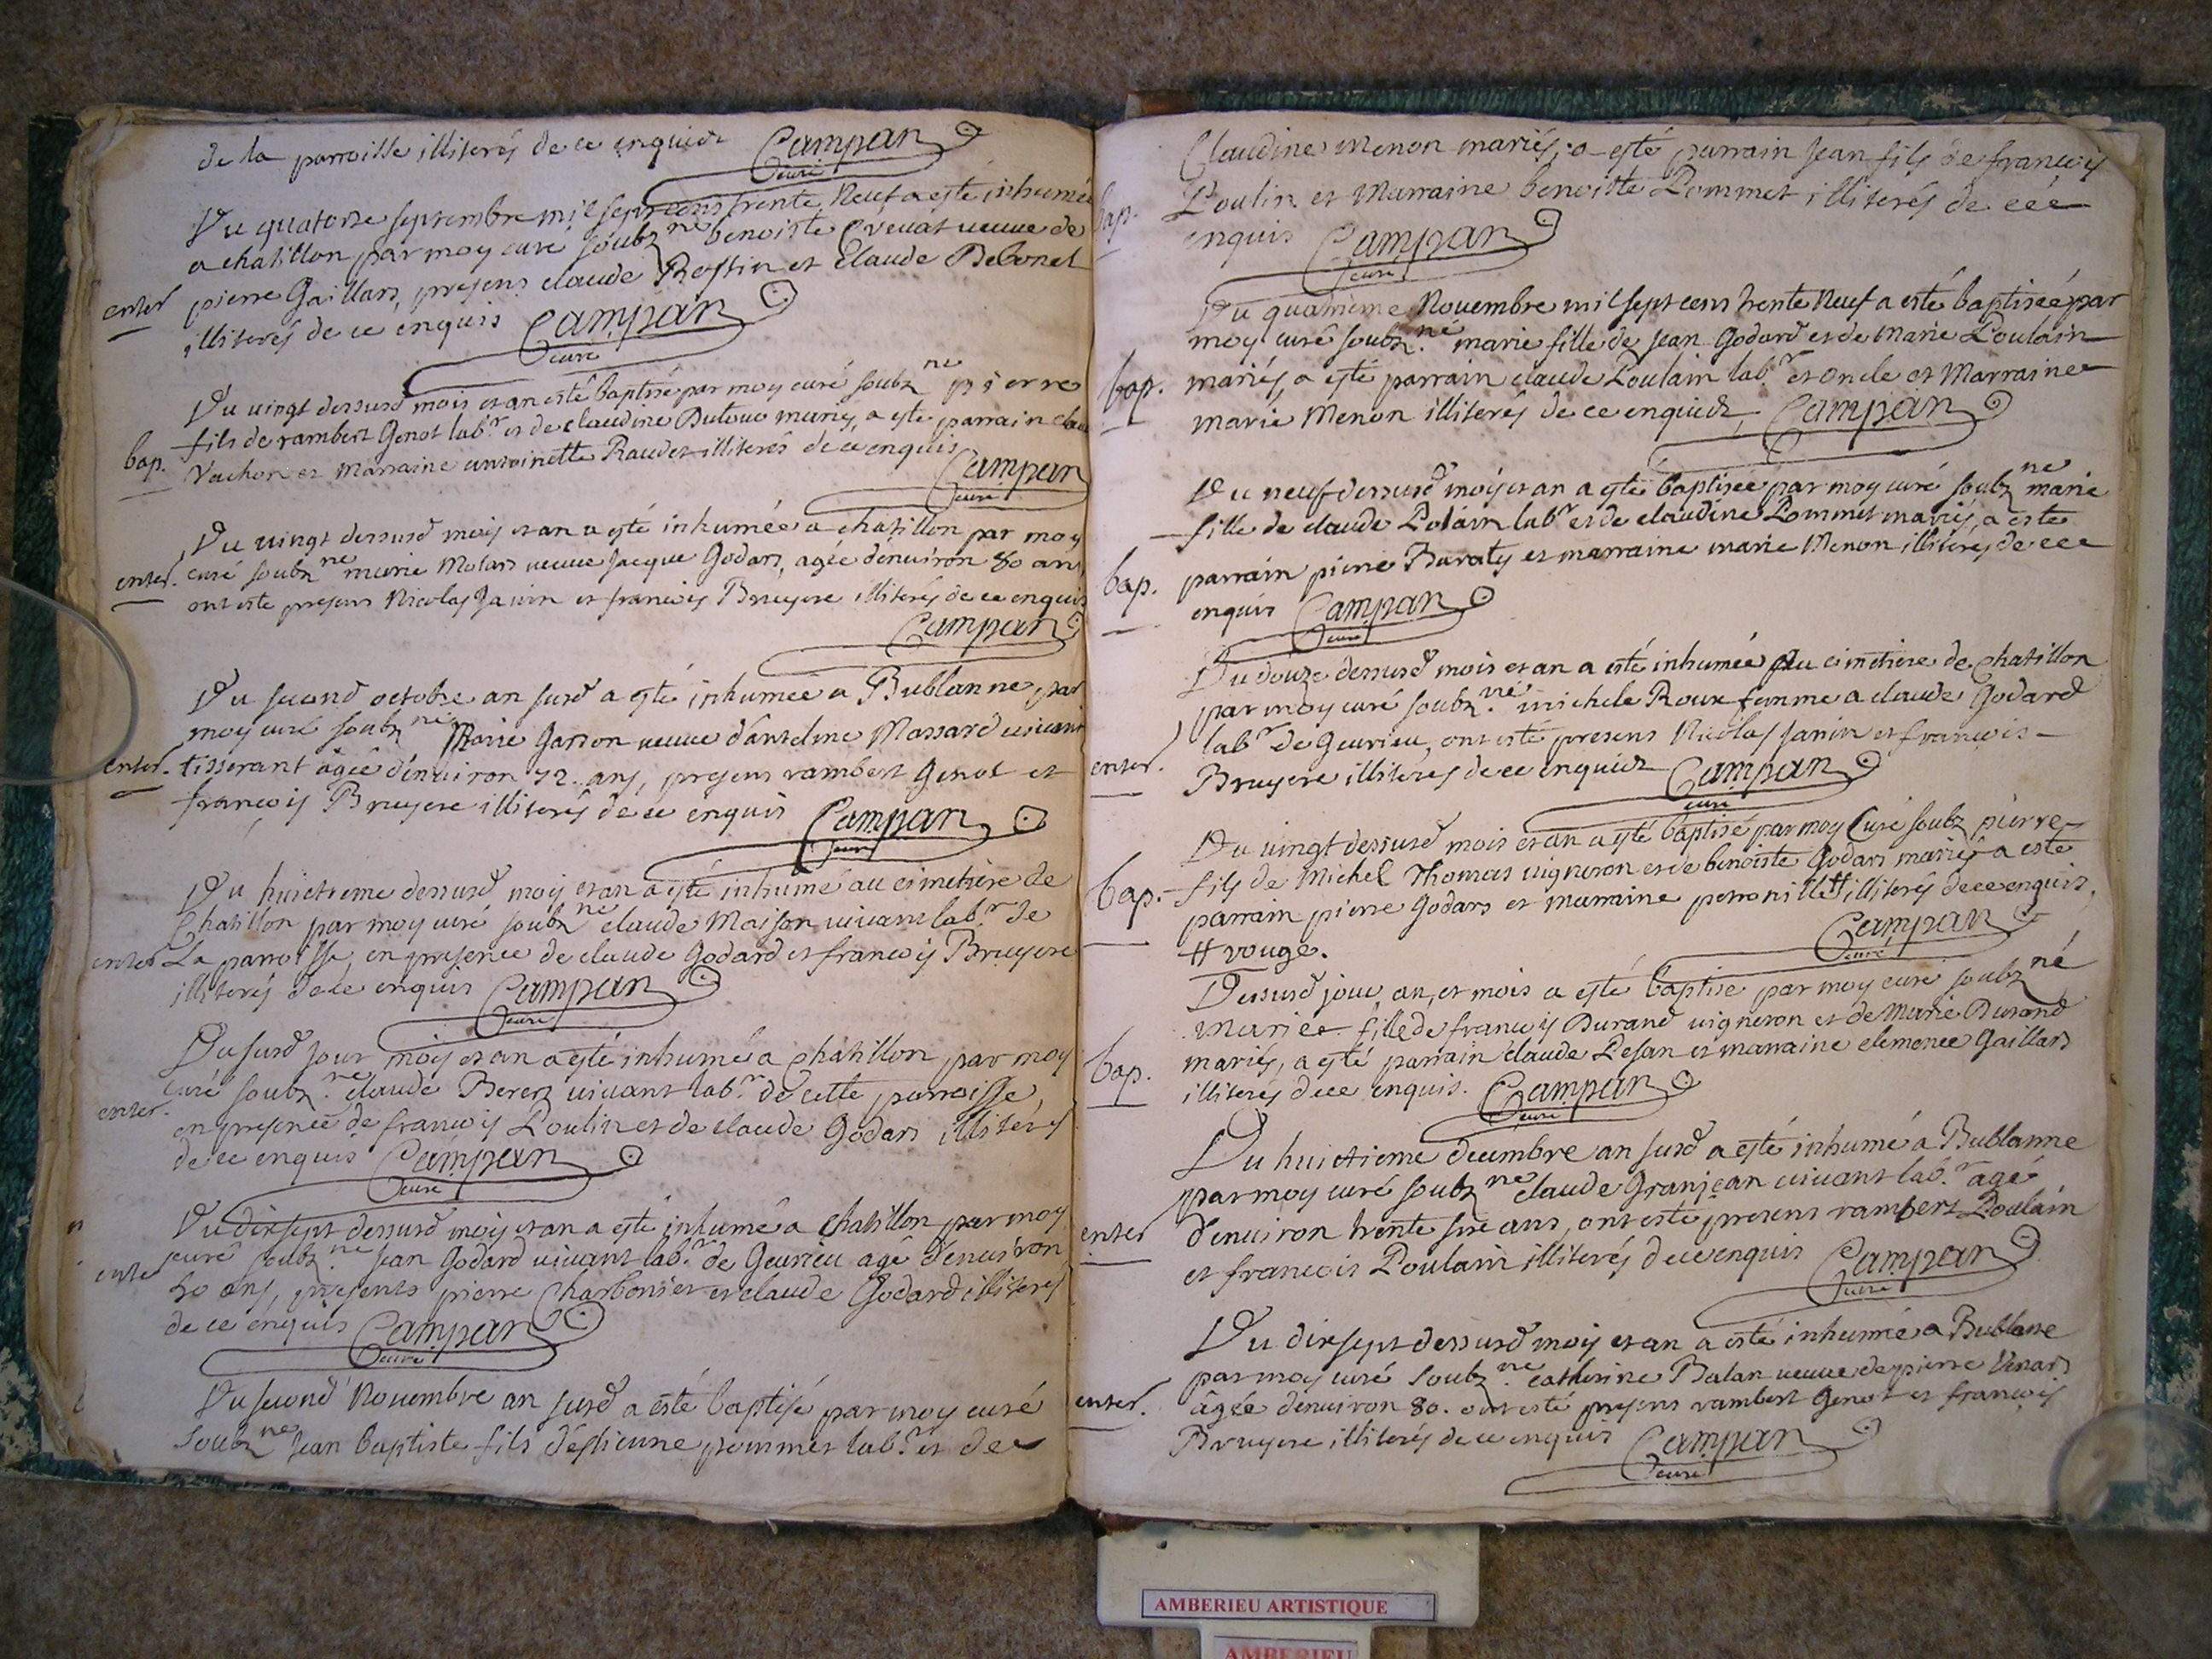 de la parroisse illiterés de ce enquis Campan
curé
Du quatorze septembre mil sept cens trente Neuf a esté inhumée
a chatillon par moy curé soubz.né benoiste veuve de
enter pierre Gaillard, presens claude Rostin et claude
illiterés de ce enquis Campan
curé
Du vingt dessusd mois et an esté baptisé par moy curé soubz né pierre
fils de rambert Genot lab.r et de claudine Dutour mariés, a esté parrain
bap. Vachon et Marraine antoinette Raudet illiterés de ce enquis
Campan
curé
Du vingt dessusd mois et an a esté inhumée a chatillon par moy
enter. curé soubz né marie Molard veuve Jacque Godard, agée d'environ 80 ans,
ont esté presens Nicolas Janin et francois Bruyere illiterés de ce enquis
Campan
Du second octobre an susd a esté inhumée a Bublanne par
moy curé soubz né Marie Gardon veuve d'antelme Massard vivant
enter. tisserant agée d'environ 72. ans, presens rambert Genot et
francois Bruyere illiterés de ce enquis Campan
curé
Du huictieme dessusd mois et an a esté inhumé au cimetiere de
Chatillon par moy curé soubz né claude Maison vivant lab.r de
enter La parroisse, en presence de claude Godard et francois Bruyere
illiterés de ce enquis Campan
curé
Du susd jour mois et an a esté inhumé a chatillon par moy
curé soubz.né claude Berers vivant lab.r de cette parroisse,
enter. en presence de francois Poulin et de claude Godard illiterés
de ce enquis Campan
curé
Du dixsept dessusd mois et an a esté inhumé a Chatillon par moy
curé soubz.né Jean Godard vivant lab.r de Gevrieu agé d'environ
enter 50 ans, presents pierre Charbonier et claude Godard illiterés
de ce enquis Campan
curé
Du second Novembre an susd a esté baptisé par moy curé
soubz né Jean baptiste fils d'estienne pommet lab.r et de
Claudine Menon mariés, a esté parrain Jean fils de francois
bap. Poulin et Marraine benoiste Pommet illiterés de ce
enquis Campan
curé
Du quatrieme Novembre mil sept cens trente Neuf a esté baptisée par
moy curé soubz.né marie fille de Jean Godard et de Marie Poulain
bap. mariés, a esté parrain claude Poulain lab.r et oncle et Marraine
marie Menon illiterés de ce enquis, Campan
Du neuf dessusd mois et an a esté baptisée par moy curé soubz né marie
fille de claude Polain lab.r et de claudine Pommet mariés, a esté
bap. parrain pierre Baraty et marraine marie Menon illiterés de ce
enquis Campan
curé
Du douze dessusd mois et an a esté inhumée Au cimetiere de chatillon
par moy curé soubz.né michele Roux femme a claude Godard
enter. lab.r de Gevrieu, ont esté presens Nicolas Janin et francois
Bruyere illiterés de ce enquis Campan
curé
Du vingt dessusd mois et an a esté baptisé par moy Curé soubz pierre
bap. fils de Michel Thomas vigneron et de benoiste Godard mariés a esté
parrain pierre Godard et marraine petronille # illiterés de ce enquis,
# rouge. Campan
curé
Dessusd jour, an, et mois a esté baptisé par moy curé soubz né
Mariee fille de francois Durand vigneron et de Marie Durand
bap. mariés, a esté parrain claude Pesan et marraine clemence Gaillard
illiterés de ce enquis. Campan
curé
Du huictieme decembre an susd a esté inhumé a Bublanne
par moy curé soubz né claude Granjean vivant lab.r agé
enter d'environ trente six ans, ont esté presens rambert Poulain
et francois Poulain illiterés de ce enquis Campan
curé
Du dixsept dessusd mois et an a esté inhumée a Bublane
par moy curé soubz.né catherine Balan veuve de pierre Venard
enter. âgée d'environ 80. ont esté presens rambert Genot et francois
Bruyere illiterés de ce enquis Campan
curé
AMBERIEU ARTISTIQUE
AMBERIEU